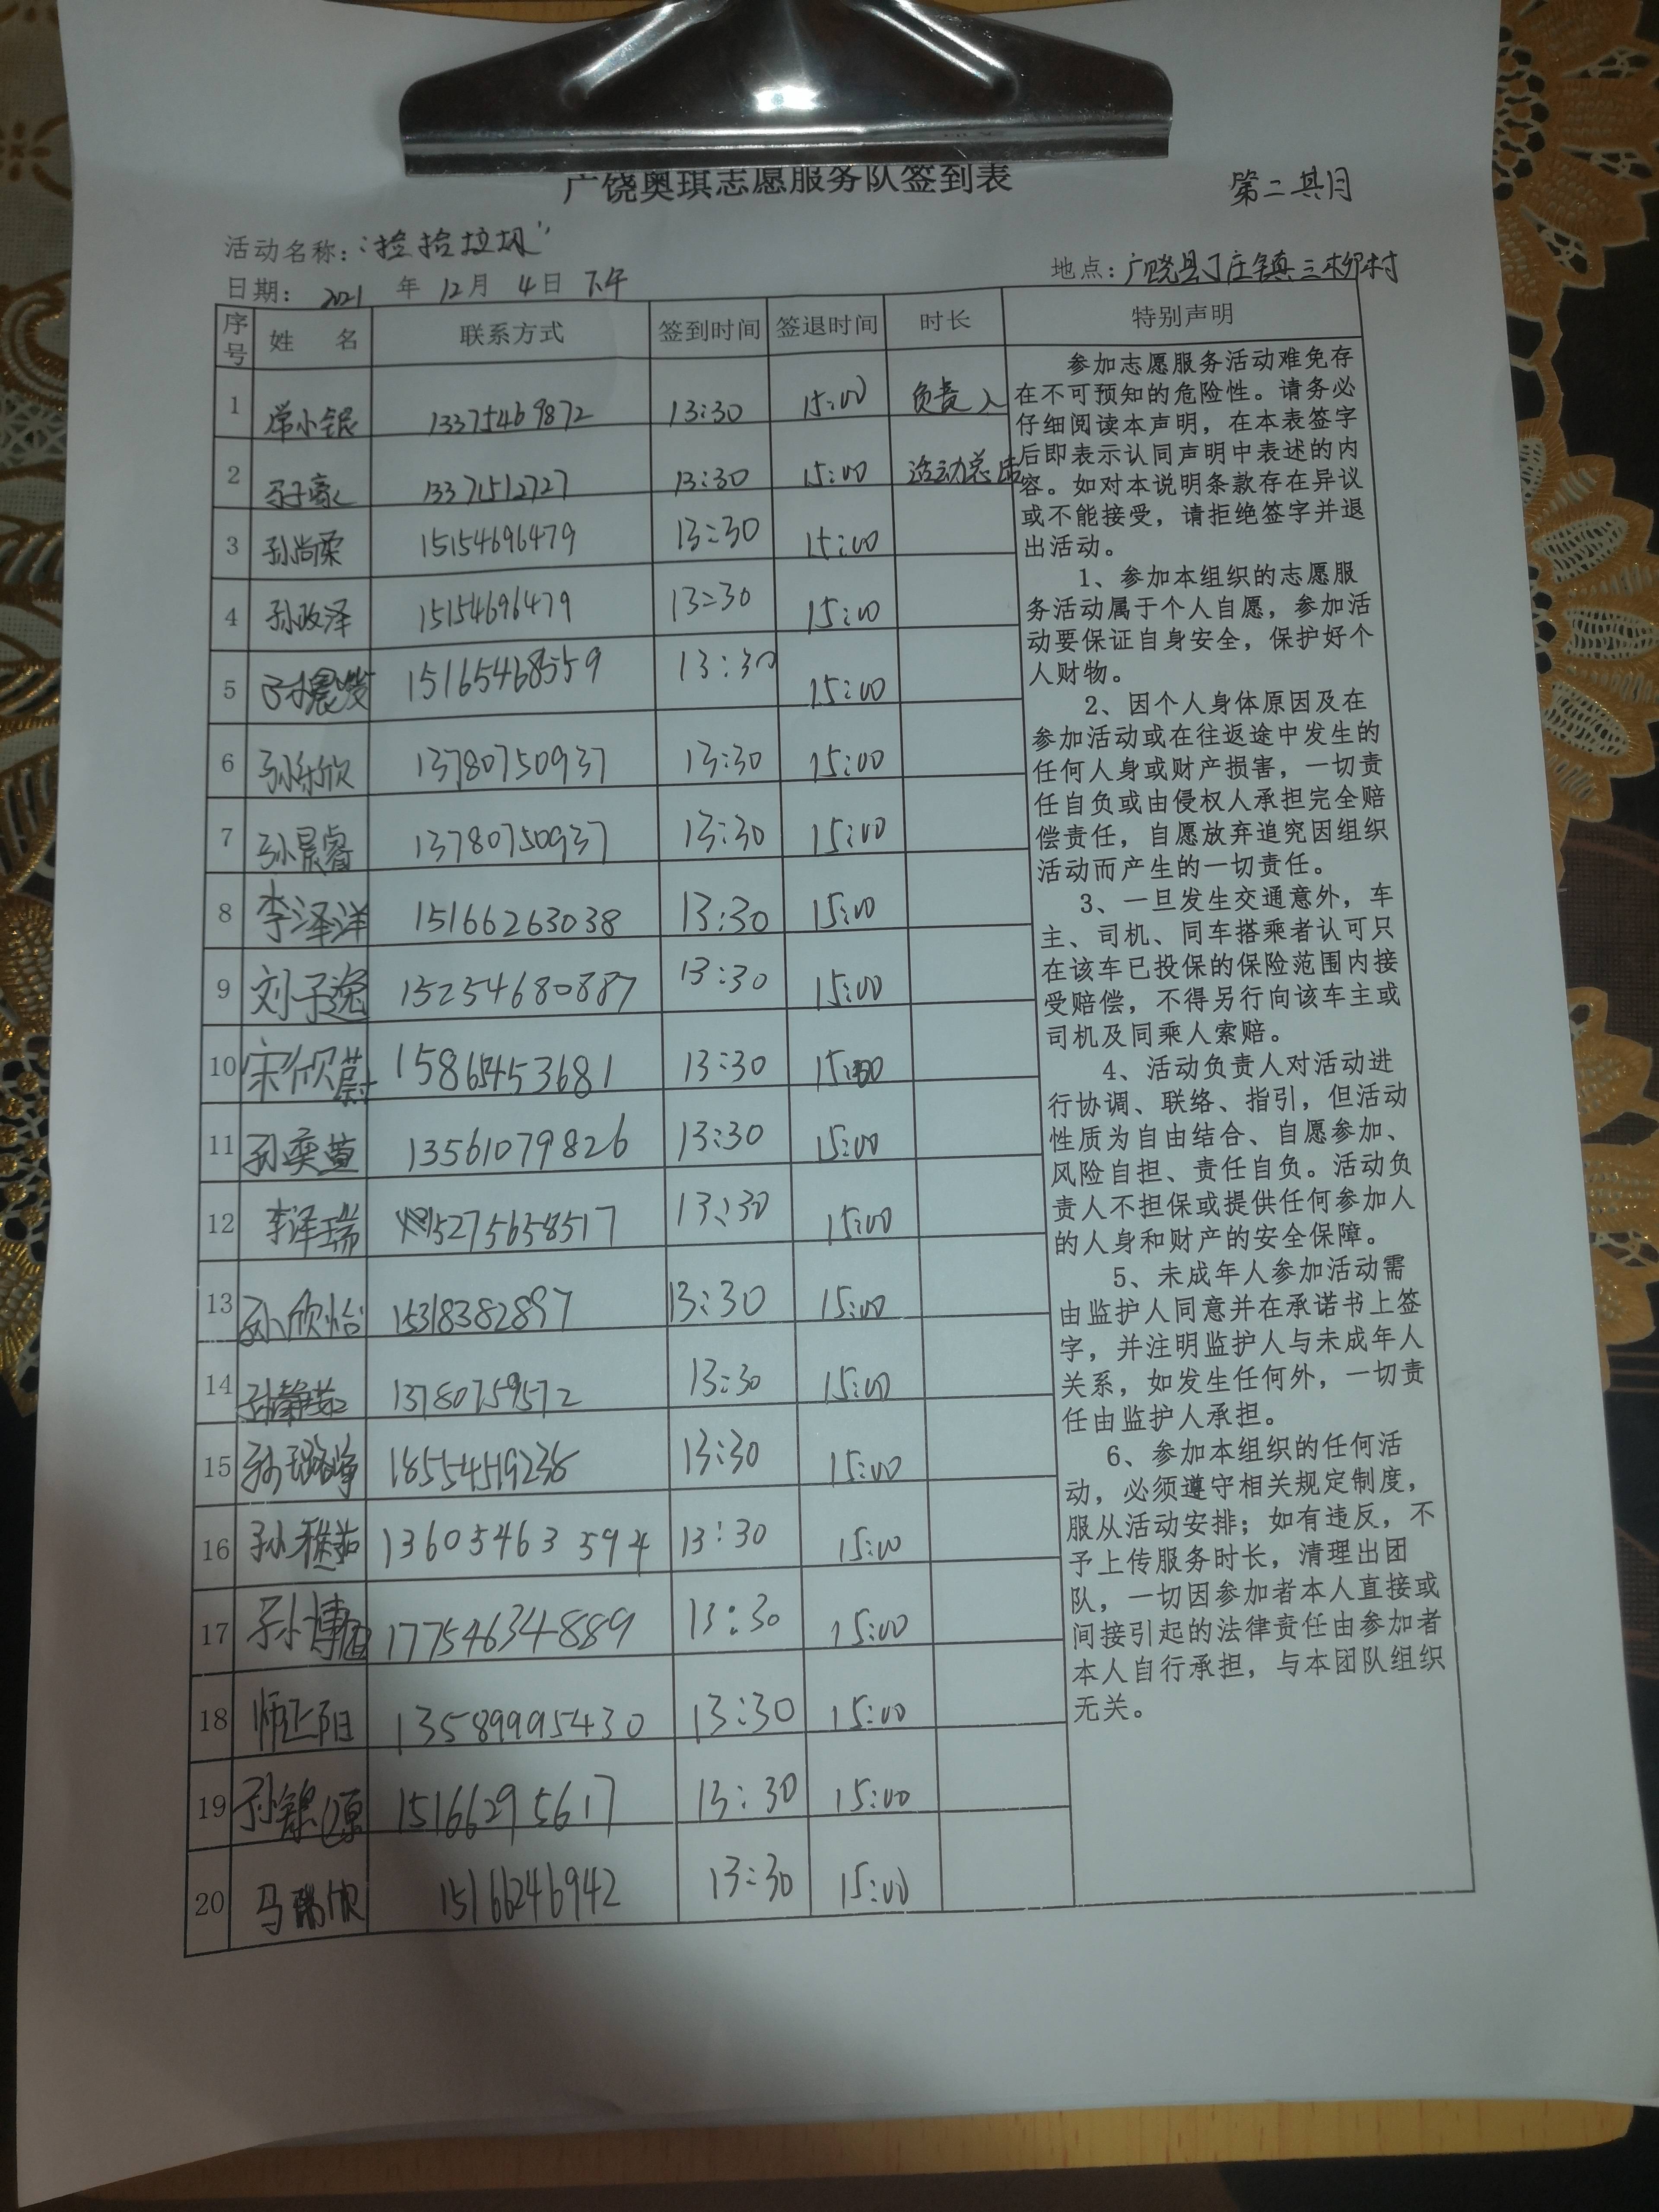 广饶奥琪志愿服务队签到表
第二期
活动名称：“捡捡垃圾”
地点：广饶县丁庄镇三柳村
日期： 2021 年 12月 4日 下午
序号 姓 名 联系方式 签到时间 签退时间 时长 特别声明
1 常小银 13375469872 13:30 15:00 负责人
2 13371512727 13:30 15:00 活动总结
3 孙尚柔 15154696479 13:30 15:00
4 孙政泽 15154696479 13:30 15:00
5 15165468559 13:30 15:00
6 孙乐欣 13780750937 13:30 15:00
7 孙晨睿 13780750937 13:30 15:00
8 李泽洋 15166263038 13:30 15:00
9 刘子逸 15254680887 13:30 15:00
10 宋欣蔚 15865453681 13:30 15:00
11 孙奕萱 13561079826 13:30 15:00
12 李泽瑞 15275658517 13:30 15:00
13 孙欣怡 15318382897 13:30 15:00
14 孙静茹 13780759572 13:30 15:00
15 18554519238 13:30 15:00
16 孙雅茹 13605463594 13:30 15:00
17 17754634889 13:30 15:00
18 13589995430 13:30 15:00
19 15166295617 13:30 15:00
20 马瑞欣 15166246942 13:30 15:00
参加志愿服务活动难免存
在不可预知的危险性。请务必
仔细阅读本声明，在本表签字
后即表示认同声明中表述的内
容。如对本说明条款存在异议
或不能接受，请拒绝签字并退
出活动。
1、参加本组织的志愿服
务活动属于个人自愿，参加活
动要保证自身安全，保护好个
人财物。
2、因个人身体原因及在
参加活动或在往返途中发生的
任何人身或财产损害，一切责
任自负或由侵权人承担完全赔
偿责任，自愿放弃追究因组织
活动而产生的一切责任。
3、一旦发生交通意外，车
主、司机、同车搭乘者认可只
在该车已投保的保险范围内接
受赔偿，不得另行向该车主或
司机及同乘人索赔。
4、活动负责人对活动进
行协调、联络、指引，但活动
性质为自由结合、自愿参加、
风险自担、责任自负。活动负
责人不担保或提供任何参加人
的人身和财产的安全保障。
5、未成年人参加活动需
由监护人同意并在承诺书上签
字，并注明监护人与未成年人
关系，如发生任何外，一切责
任由监护人承担。
6、参加本组织的任何活
动，必须遵守相关规定制度，
服从活动安排；如有违反，不
予上传服务时长，清理出团
队，一切因参加者本人直接或
间接引起的法律责任由参加者
本人自行承担，与本团队组织
无关。